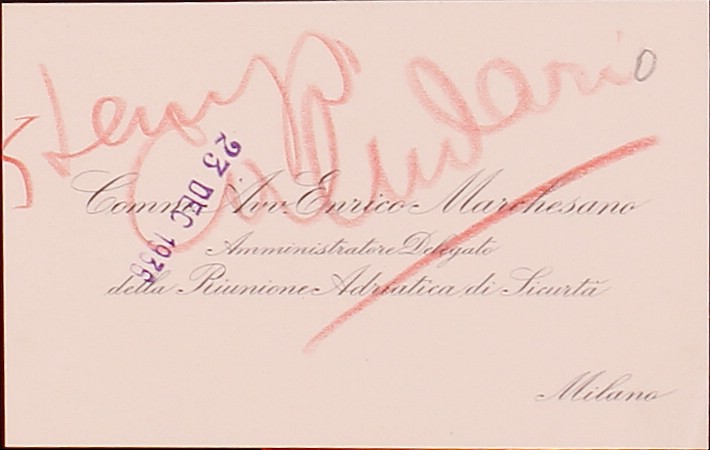 Calendario
23 DEC 1936
Comm. Avv. Enrico Marchesano
Amministratore Delegato
della Riunione Adriatica di Sicurtà
Milano